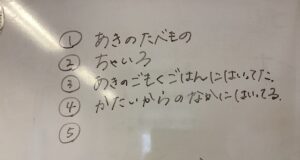 ① あきのたべもの
② ちゃいろ
③ あきのごもくごはんにはいってた。
④ かたいからのなかにはいってる。
⑤